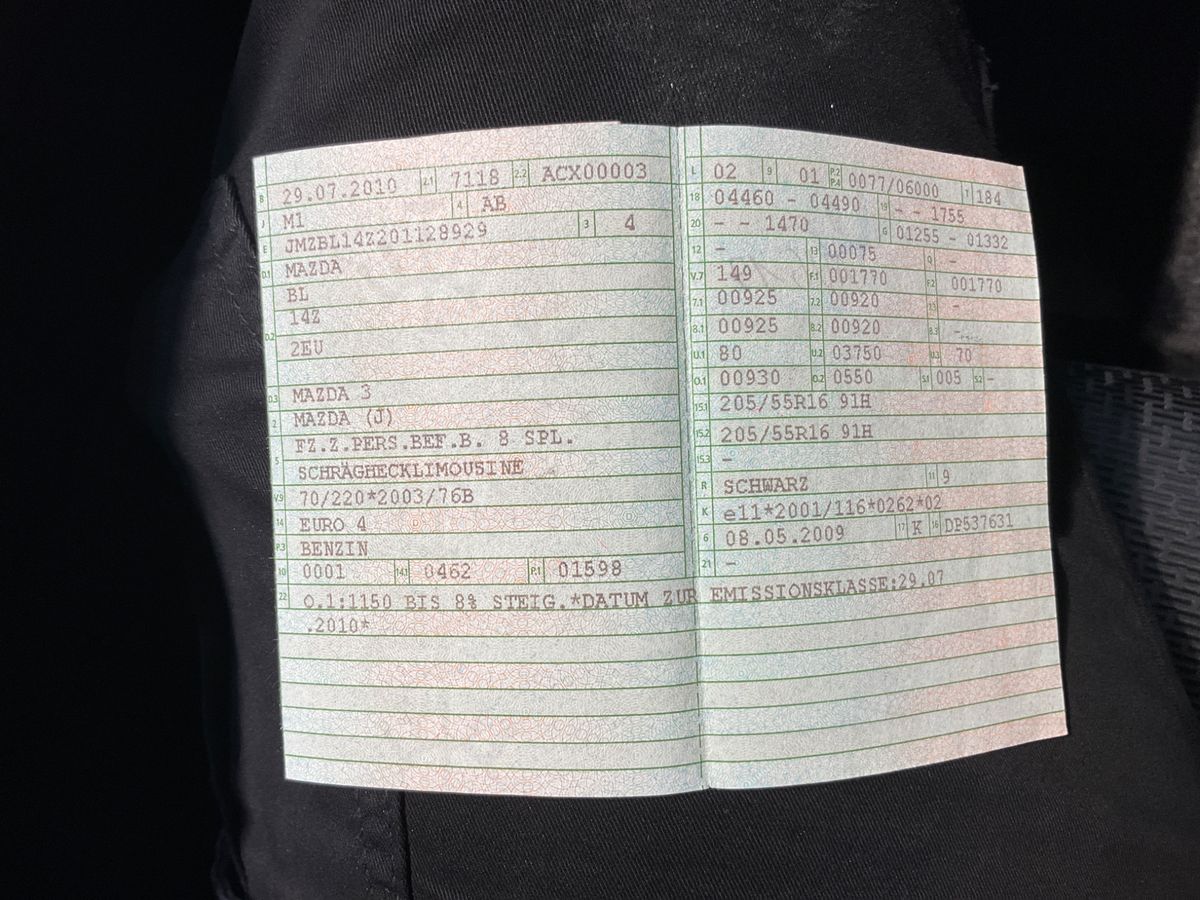 B 29.07.2010 2.1 7118 2.2 ACX00003
J M1 4 AB
E JMZBL14Z201128929 3 4
D.1 MAZDA
BL
14Z
D.2 2EU
D.3 MAZDA 3
2 MAZDA (J)
FZ.Z.PERS.BEF.B. 8 SPL.
5 SCHRÄGHECKLIMOUSINE
V.9 70/220*2003/76B
14 EURO 4
P.3 BENZIN
10 0001 14.1 0462 P.1 01598
L 02 9 01 P.2 P.4 0077/06000 T 184
18 04460 - 04490 19 - - 1755
20 - - 1470 G 01255 - 01332
12 - 13 00075 Q -
V.7 149 F.1 001770 F.2 001770
7.1 00925 7.2 00920 7.3 -
8.1 00925 8.2 00920 8.3 -
U.1 80 U.2 03750 U.3 70
O.1 00930 O.2 0550 S.1 005 S.2 -
15.1 205/55R16 91H
15.2 205/55R16 91H
15.3 -
R SCHWARZ 11 9
K e11*2001/116*0262*02
6 08.05.2009 17 K 16 DP537631
21 -
22 O.1:1150 BIS 8% STEIG.*DATUM ZUR EMISSIONSKLASSE:29.07
.2010*